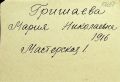 Гришаева
Мария Николаевна
1916
Мастерская 1